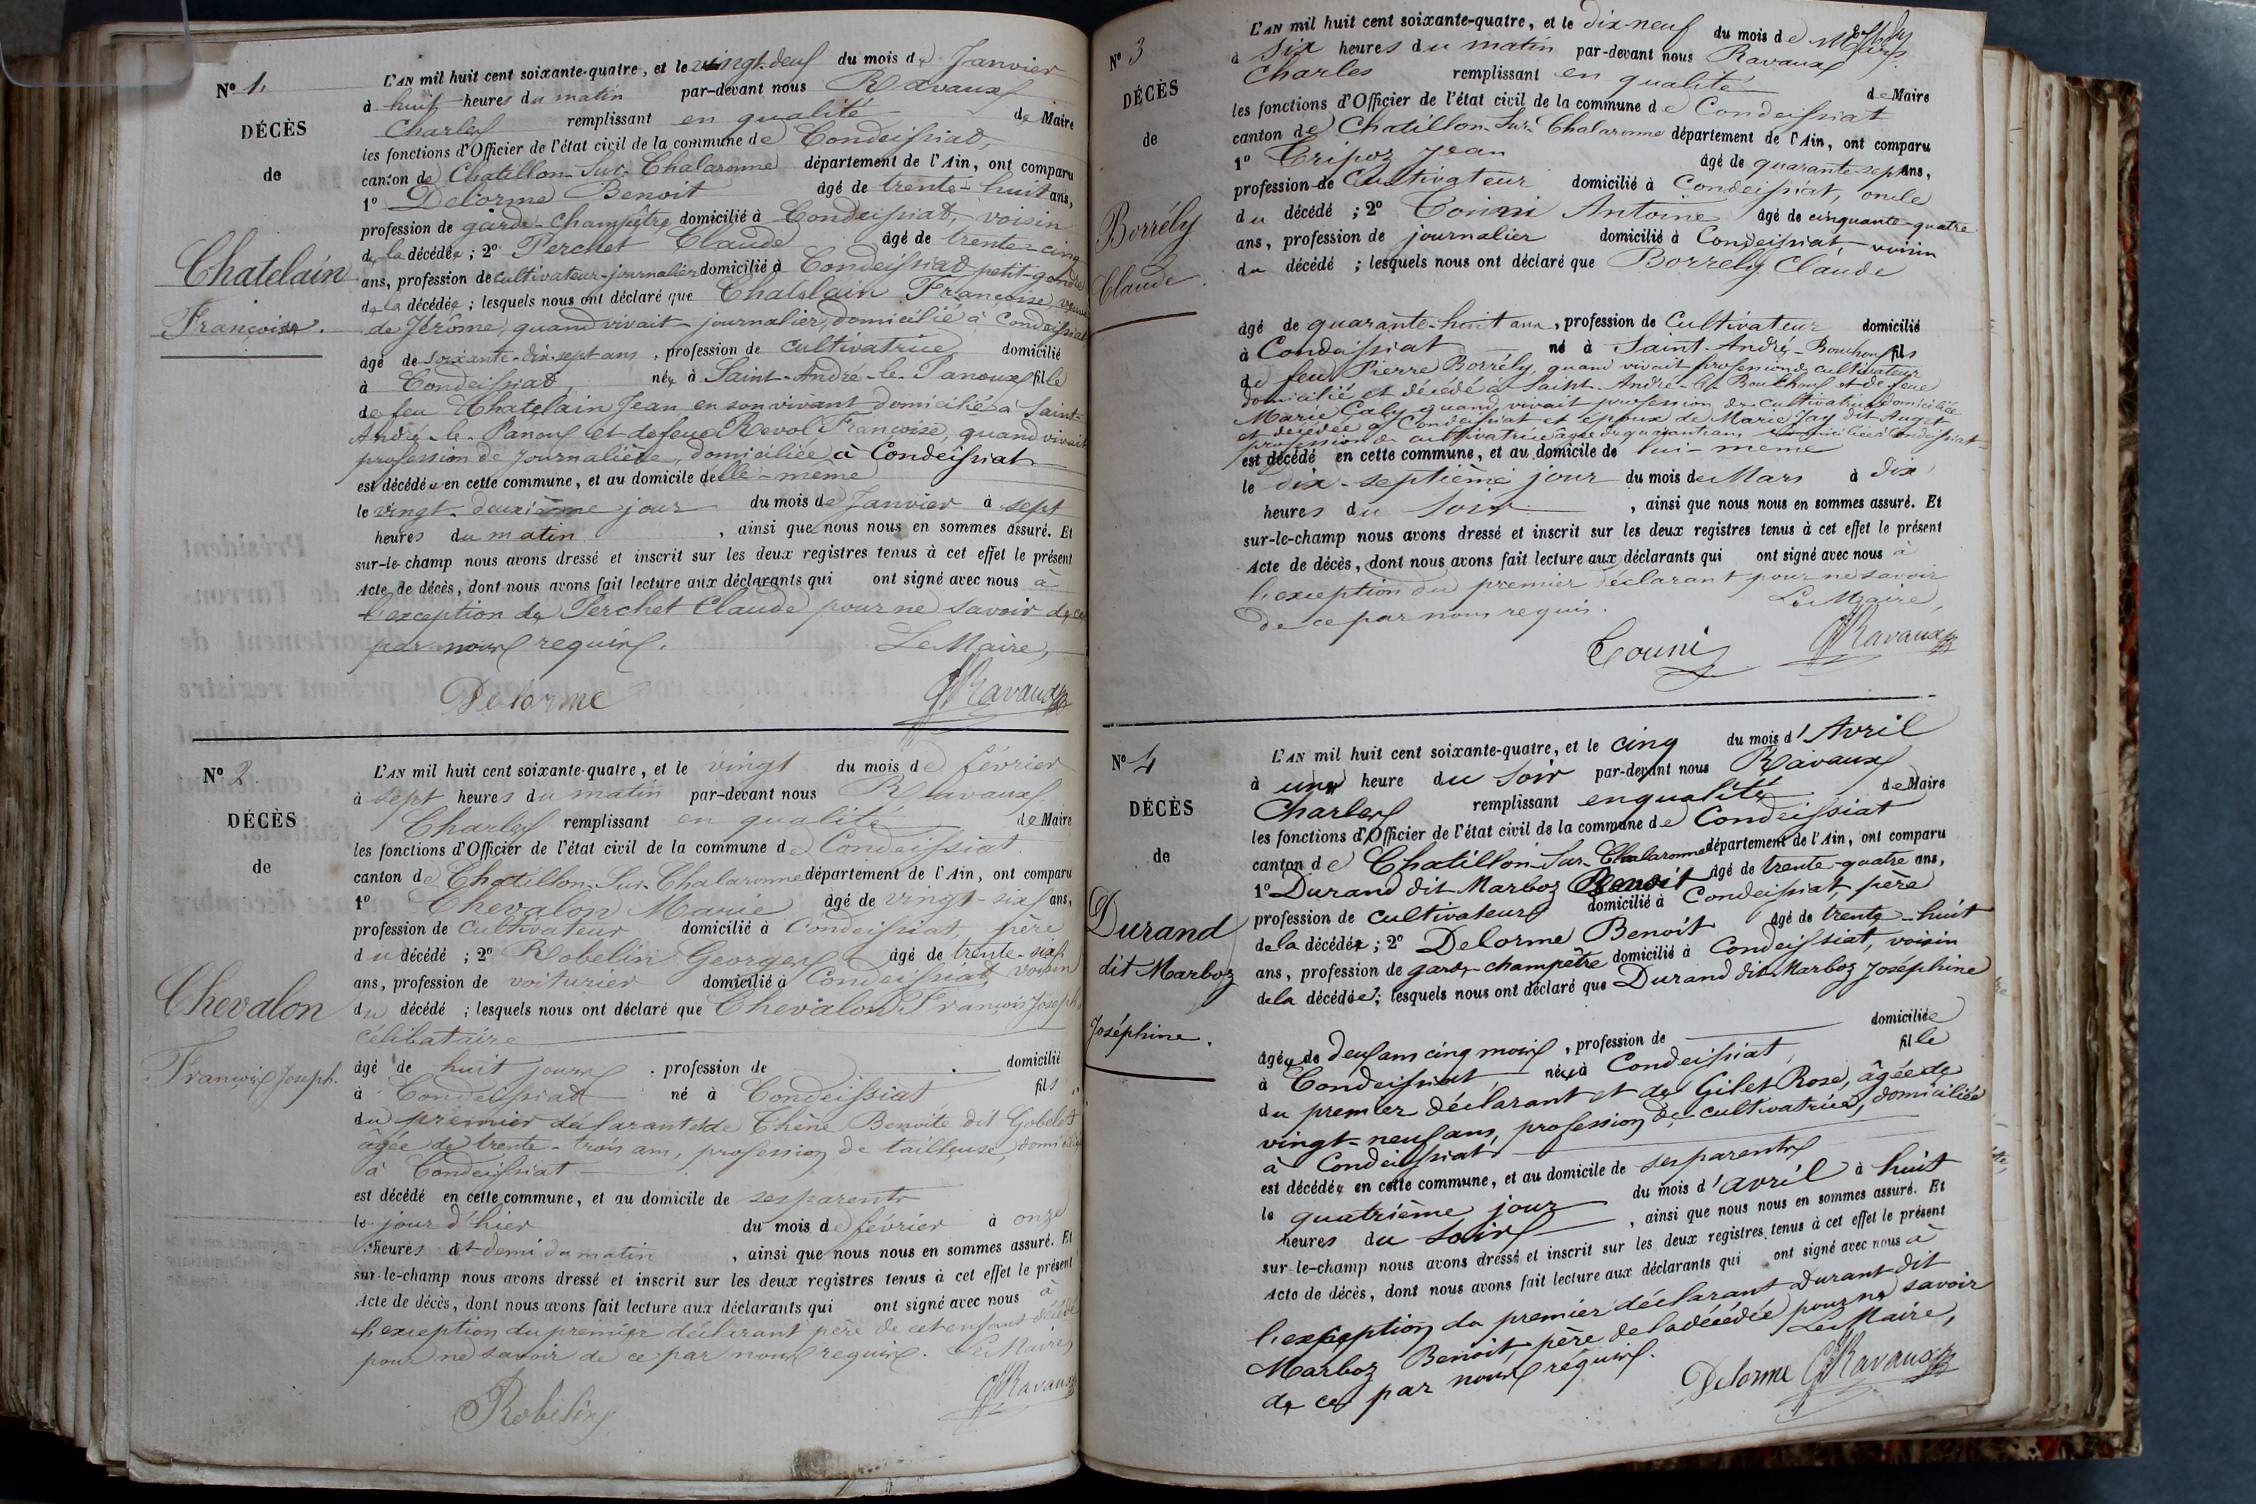 Nº 1.
DÉCÈS
de
Chatelain
Françoise.
L'AN mil huit cent soixante-quatre, et le vingt-deux du mois de Janvier
à huit heures du matin par-devant nous Ravaux
Charles remplissant en qualité de Maire
les fonctions d'Officier de l'état civil de la commune de Condeissiat,
canton de Chatillon-Sur-Chalaronne département de l'Ain, ont comparu
1º Delorme Benoit âgé de trente-huit ans,
profession de garde-champêtre domicilié à Condeissiat, voisin
de la décédée ; 2º Perchet Claude âgé de trente-cinq
ans, profession de cultivateur-journalier domicilié à Condeissiat petit-gendre
de la décédée ; lesquels nous ont déclaré que Chatelain Françoise, veuve
de Jérôme, quand vivait journalier, domicilié à Condeissiat
âgé de soixante-dix-sept ans, profession de cultivatrice domicilié
à Condeissiat, née à Saint-André-le-Panoux fille
de feu Chatelain Jean en son vivant domicilié à Saint-
André-le-Panoux et de feue Revol Françoise, quand vivait
profession de journalière, domiciliée à Condeissiat
est décédée en cette commune, et au domicile d'elle-même
le vingt-deuxième jour du mois de Janvier à sept
heures du matin, ainsi que nous nous en sommes assuré. Et
sur-le-champ nous avons dressé et inscrit sur les deux registres tenus à cet effet le présent
Acte de décès, dont nous avons fait lecture aux déclarants qui ont signé avec nous à
l'exception de Perchet Claude pour ne savoir de ce
par nous requis. Le Maire,
Delorme CRavaux
Nº 2.
DÉCÈS
de
Chevalon
François Joseph.
L'AN mil huit cent soixante-quatre, et le vingt du mois de février
à sept heures du matin par-devant nous Ravaux
Charles remplissant en qualité de Maire
les fonctions d'Officier de l'état civil de la commune de Condeissiat.
canton de Chatillon-Sur-Chalaronne département de l'Ain, ont comparu
1º Chevalon Marie âgé de vingt-six ans,
profession de cultivateur domicilié à Condeissiat, père
du décédé ; 2º Robelin Georges âgé de trente-six
ans, profession de voiturier domicilié à Condeissiat voisin
du décédé ; lesquels nous ont déclaré que Chevalon François Joseph,
célibataire
âgé de huit jours. profession de domicilié
à Condeissiat né à Condeissiat fils
du premier déclarant et de Thène Benoite dit Gobelet
âgée de trente-trois ans, profession de tailleuse, domiciliée
à Condeissiat
est décédé en cette commune, et au domicile de ses parents
le jour d'hier du mois de février à onze
heures et demi du matin, ainsi que nous nous en sommes assuré. Et
sur-le-champ nous avons dressé et inscrit sur les deux registres tenus à cet effet le présent
Acte de décès, dont nous avons fait lecture aux déclarants qui ont signé avec nous à
l'exception du premier déclarant père de cet enfant décédé
pour ne savoir de ce par nous requis. Le Maire,
Robelin CRavaux
Nº 3
DÉCÈS
de
Borrély
Claude.
L'AN mil huit cent soixante-quatre, et le dix-neuf du mois de Mars
à six heures du matin par-devant nous Ravaux
Charles remplissant en qualité de Maire
les fonctions d'Officier de l'état civil de la commune de Condeissiat
canton de Chatillon-Sur-Chalaronne département de l'Ain, ont comparu
1º Tripoz Jean âgé de quarante-sept ans,
profession de Cultivateur domicilié à Condeissiat, oncle
du décédé ; 2º Antoine âgé de cinquante-quatre
ans, profession de journalier domicilié à Condeissiat, voisin
du décédé ; lesquels nous ont déclaré que Borrély Claude
âgé de quarante-huit ans, profession de Cultivateur domicilié
à Condeissiat né à Saint-André-Bouchoux fils
de feu Pierre Borrély, quand vivait profession de cultivateur
domicilié et décédé à Saint-André-le-Bouchoux et de feue
Marie Caly quand vivait profession de cultivatrice domiciliée
et décédée à Condeissiat et époux de Marie Jay dit Auget
profession de cultivatrice âgée de quarante ans domiciliée à Condeissiat
est décédé en cette commune, et au domicile de lui-même
le dix-septième jour du mois de Mars à dix
heures du soir, ainsi que nous nous en sommes assuré. Et
sur-le-champ nous avons dressé et inscrit sur les deux registres tenus à cet effet le présent
Acte de décès, dont nous avons fait lecture aux déclarants qui ont signé avec nous à
l'exception du premier déclarant pour ne savoir
de ce par nous requis. Le Maire,
Couni CRavaux
Nº 4
DÉCÈS
de
Durand
dit Marboz
Joséphine.
L'AN mil huit cent soixante-quatre, et le cinq du mois d'Avril
à une heure du soir par-devant nous Ravaux
Charles remplissant en qualité de Maire
les fonctions d'Officier de l'état civil de la commune de Condeissiat
canton de Chatillon-Sur-Chalaronne département de l'Ain, ont comparu
1º Durand dit Marboz Benoit âgé de trente-quatre ans,
profession de cultivateur domicilié à Condeissiat, père
de la décédée ; 2º Delorme Benoit âgé de trente-huit
ans, profession de garde-champêtre domicilié à Condeissiat, voisin
de la décédée ; lesquels nous ont déclaré que Durand dit Marboz Joséphine
âgée de deux ans cinq mois, profession de domiciliée
à Condeissiat née à Condeissiat, fille
du premier déclarant et de Gilet Rose, âgée de
vingt-neuf ans, profession de cultivatrice, domiciliée
à Condeissiat
est décédée en cette commune, et au domicile de ses parents
le quatrième jour du mois d'avril à huit
heures du soir, ainsi que nous nous en sommes assuré. Et
sur-le-champ nous avons dressé et inscrit sur les deux registres tenus à cet effet le présent
Acte de décès, dont nous avons fait lecture aux déclarants qui ont signé avec nous à
l'exception du premier déclarant Durant dit
Marboz Benoit, père de la décédée pour ne savoir
de ce par nous requis. Le Maire,
Delorme CRavaux